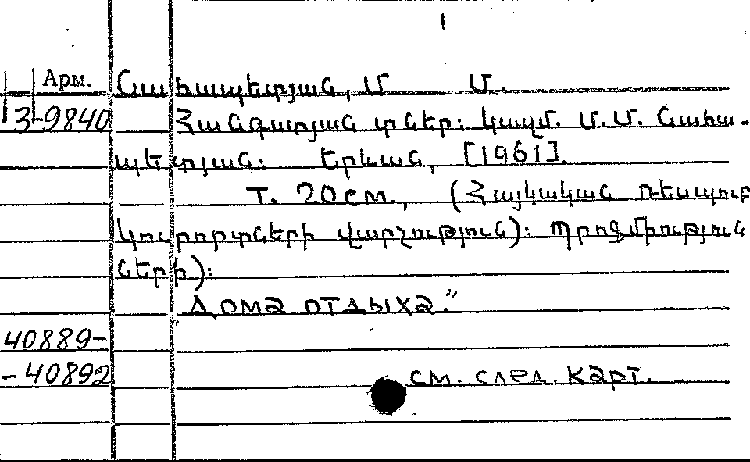 Арм. Նահապետյան, Մ. Մ.
3-9840 Հանգստյան տներ: Կազմ. Մ.Մ. Նահա-
պետյան: Երևան, [1961].
Т. 20см., (Հայկական ռեսպուբ
կուրորտների վարչություն): Պրոֆմիություն
ների):
"Дома отдыха."
40889-
-40892 см. след. карт.